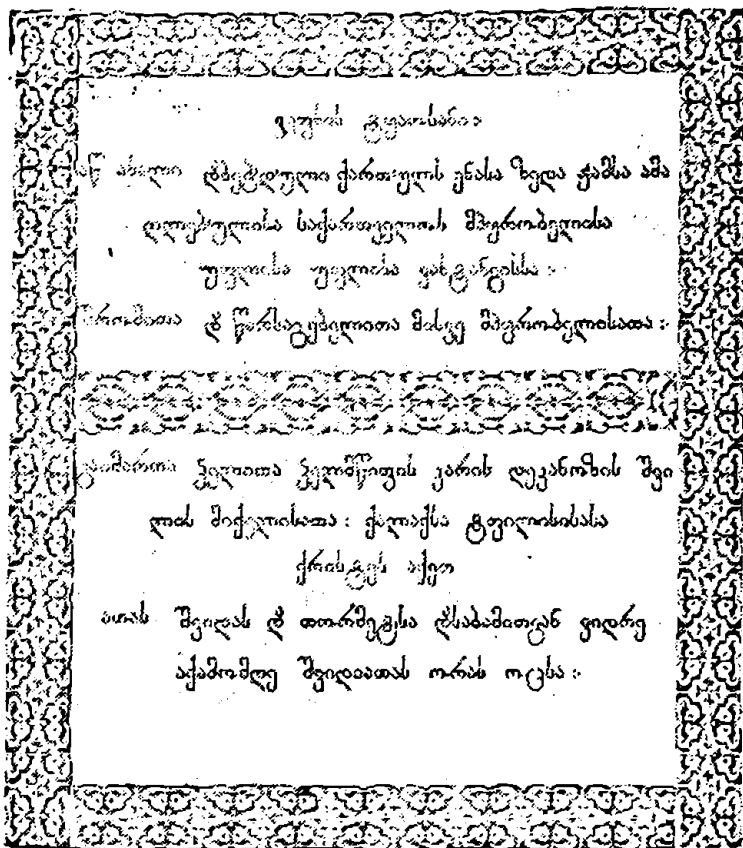 ვეფხის ტყაოსანი:
აწ ახალი დბეჭდული ქართულს ენასა ზედა ჟამსა ამა
ღლებულისა საქართველოს მპყრობელისა
უფლისა უფლისა ვახტანგისსა:
წრომითა დ წარსაგებელითა მისვე მპყრობელისათა:
გაიმართა ჴელითა ჴელმწიფის კარის დეკანოზის შვი
ლის მიქელისათა: ქალაქსა ტფილისისასა
ქრისტეს აქეთ
ათას შვიდას დ თორმეტსა დსაბამითგან ვიდრე
აქამომდე შვიდიათას ორას ოცსა: